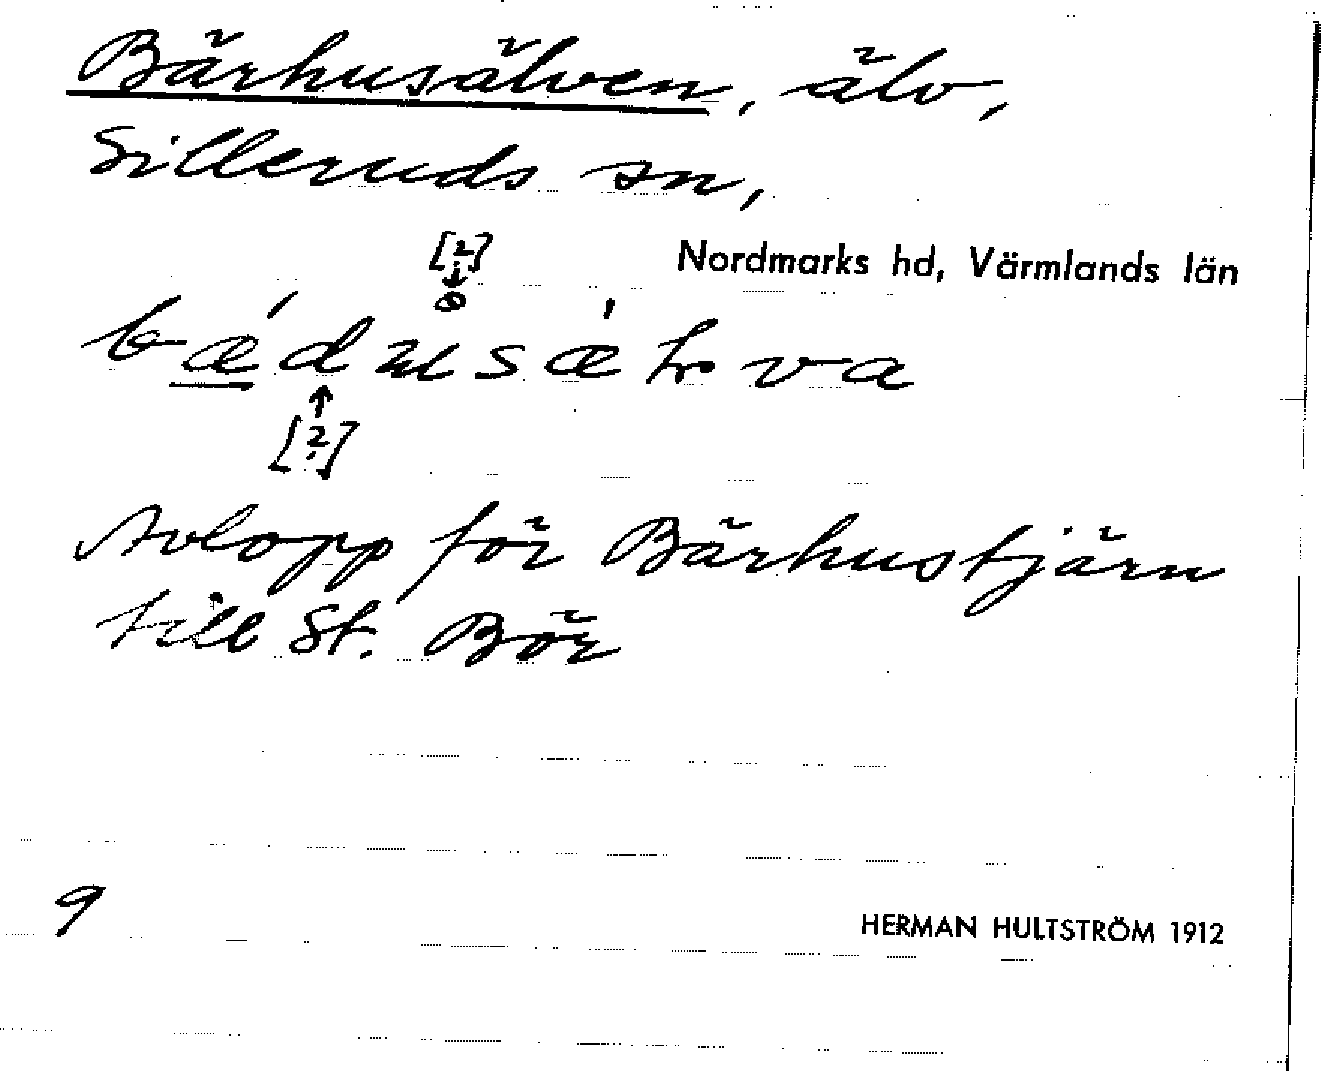 Bärhusälven, älv,
Silleruds sn,
Nordmarks hd, Värmlands län
[?]
[?]
Avlopp för Bärhustjärn
till St. Bör
9
HERMAN HULTSTRÖM 1912